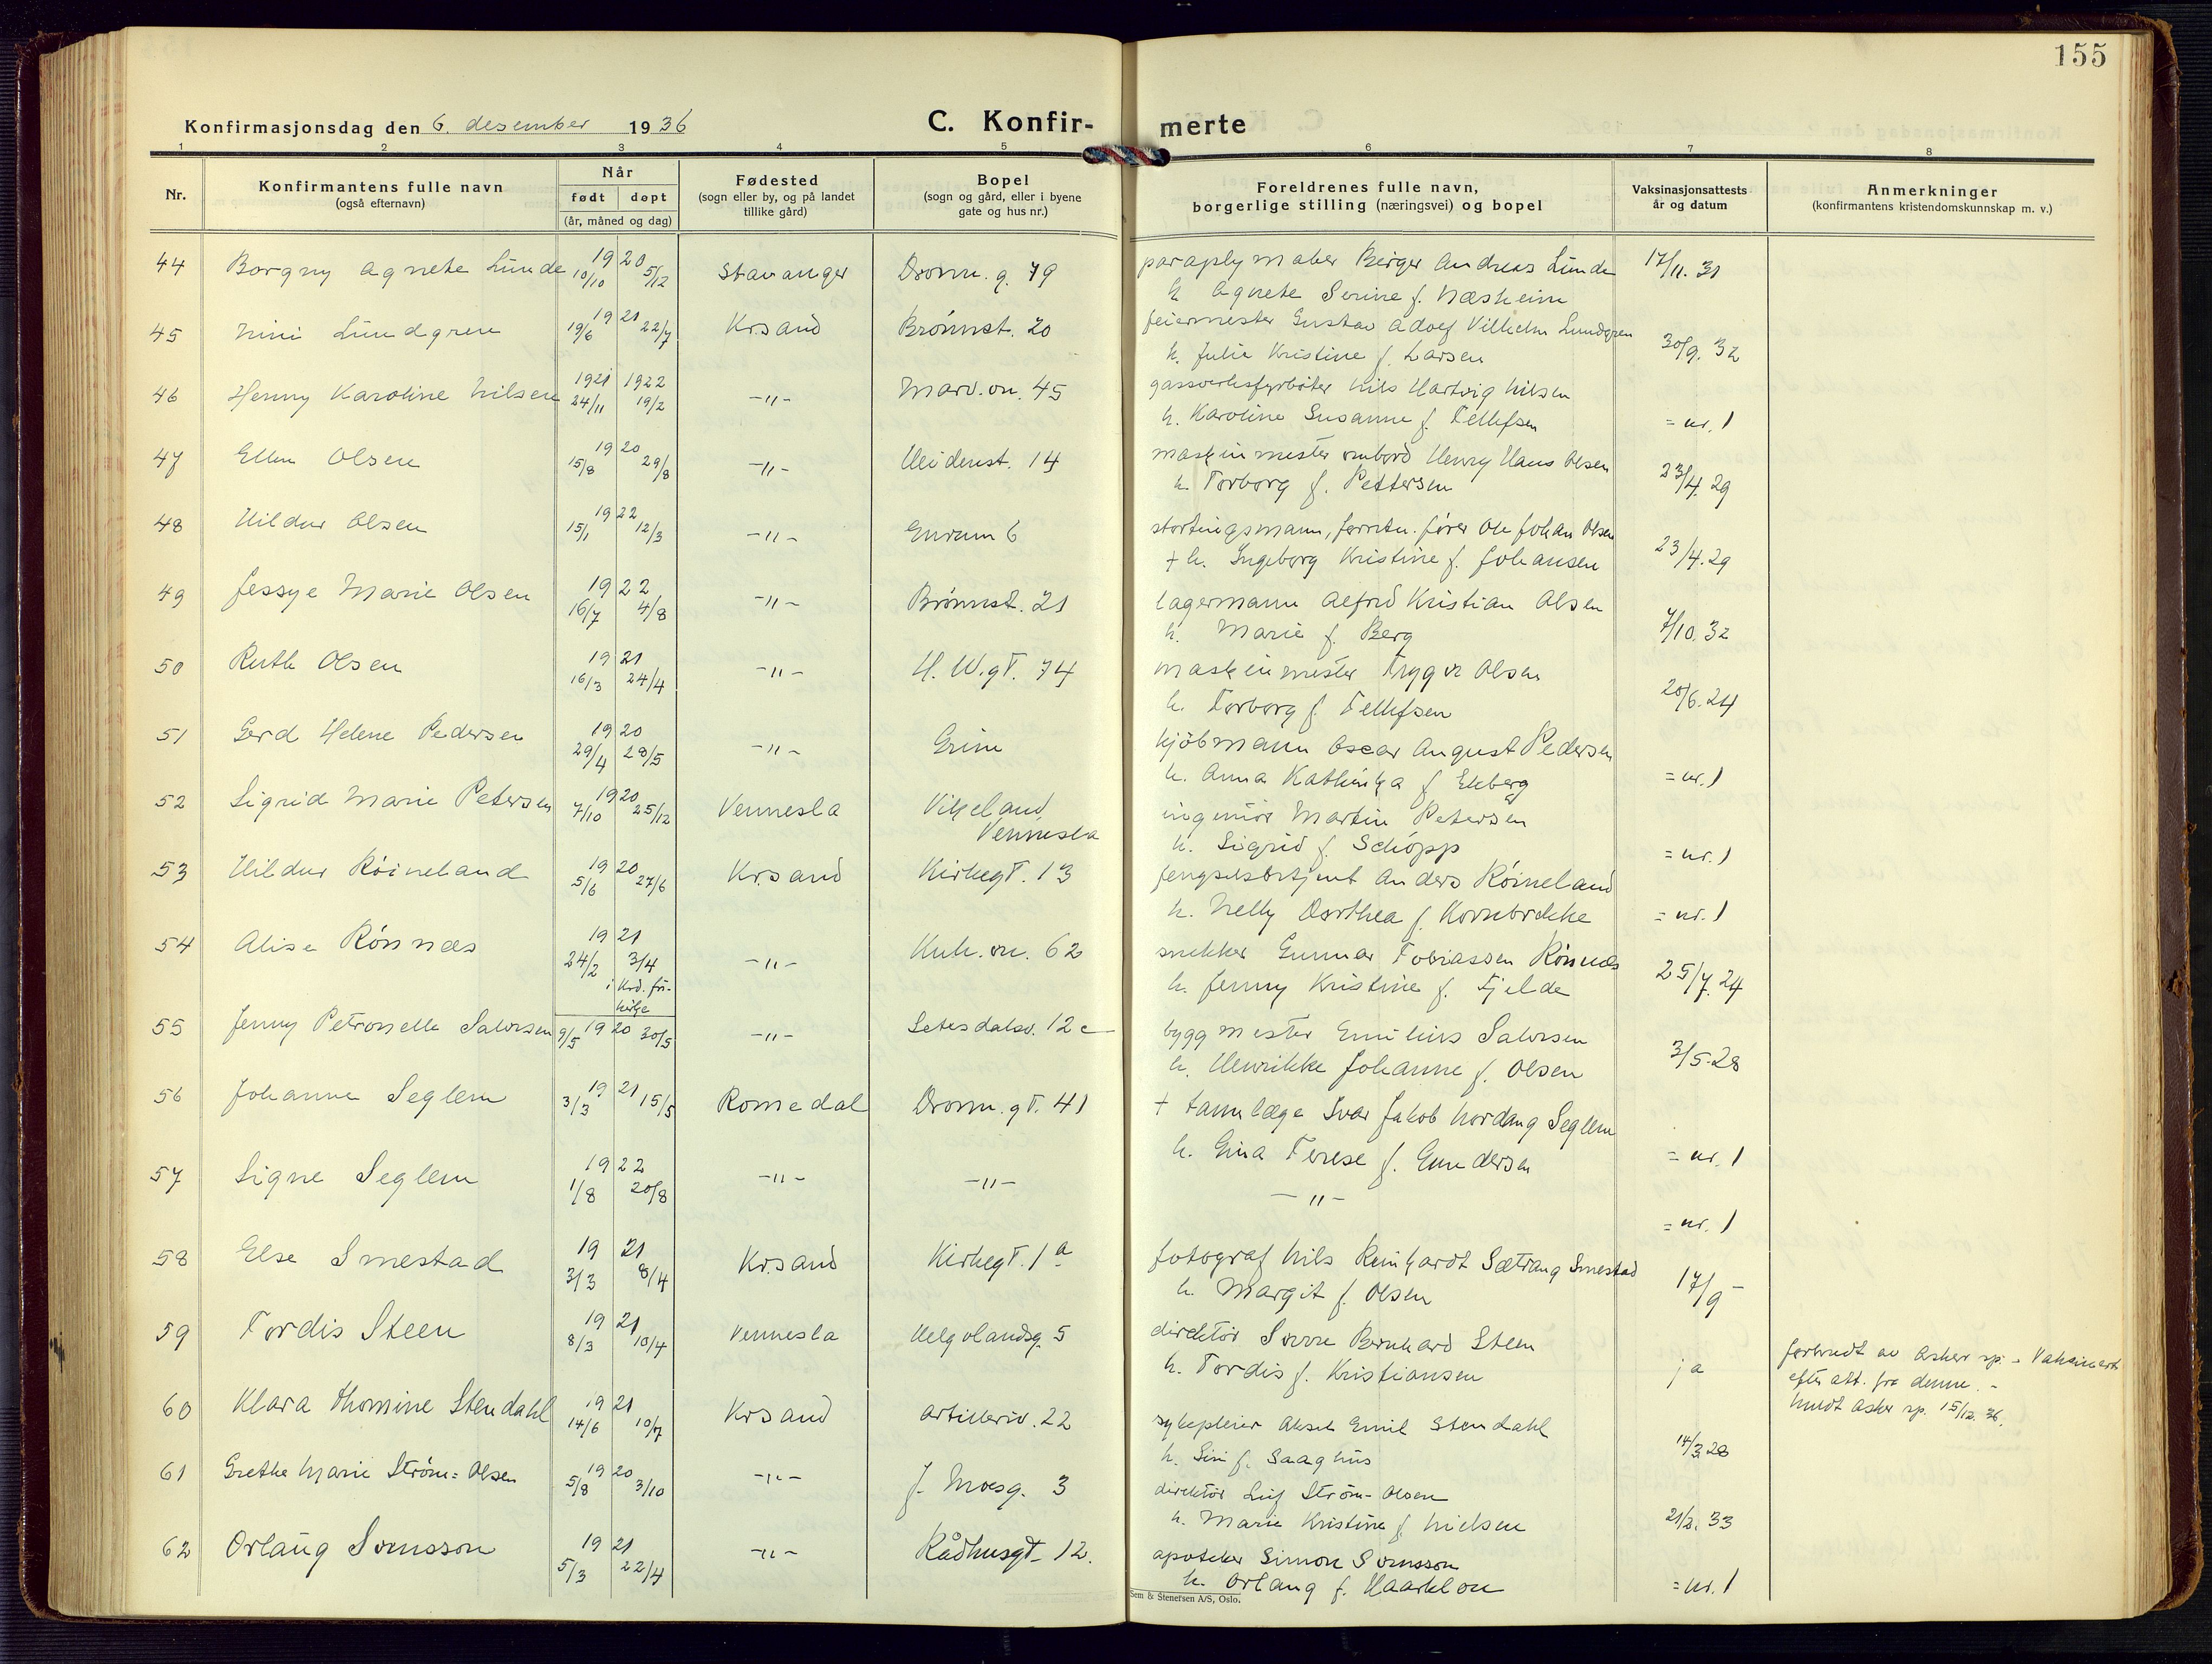 155
Konfirmasjonsdag den 6. desember 1936
C. Konfir-
merte
1 2 3 4 5 6 7 8
Nr.
Konfirmantens fulle navn
(også efternavn)
Når
født døpt
(år, måned og dag)
Fødested
(sogn eller by, og på landet
tillike gård)
Bopel
(sogn og gård, eller i byene
gate og hus nr.)
Foreldrenes fulle navn,
borgerlige stilling (næringsvei) og bopel
Vaksinasjonsattests
år og datum
Anmerkninger
(konfirmantens kristendomskunnskap m. v.)
44 Borgny Agnete Lunde 1920 10/10 5/12 Stavanger Dronn. g. 79 paraplymaker Berger Andreas Lunde 17/11. 31
h. Agnete Serine f. Næsheim
45 Nini Lundgren 1921 19/6 22/7 Kr.sand Brønnst. 20 feiermester Gustav Adolf Vilhelm Lundgren 30/9. 32
h. Julie Kristine f. Larsen
46 Henny Karoline Nilsen 1921 1922 24/11 19/2 -"- Marv. vn. 45 gassverksfyrbøter Nils Hartvig Nilsen
h. Karoline Susanne f. Tellefsen = nr. 1
47 Ellen Olsen 1920 15/8 29/8 -"- Heidenst. 14 maskinmester ombord Henry Hans Olsen 23/4. 29
h. Torborg f. Pettersen
48 Hildur Olsen 1922 15/1 12/3 -"- Enrum 6 stortingsmann, forretn. fører Ole Johan Olsen 23/4. 29
+ h. Ingeborg Kristine f. Johansen
49 Jessye Marie Olsen 1922 16/7 4/8 -"- Brønnst. 21 lagermann Alfred Kristian Olsen 7/10. 32
h. Marie f. Berg
50 Ruth Olsen 1921 16/3 24/4 -"- H. W. gt. 74 maskinmester Trygve Olsen 20/6. 24
h. Torborg f. Tellefsen
51 Gerd Helene Pedersen 1920 29/4 28/5 -"- Grim kjøbmann Oscar August Pedersen
h. Anna Kathinka f. Ekberg = nr. 1
52 Sigrid Marie Petersen 1920 7/10 25/12 Vennesla Vikeland, Vennesla ingeniør Martin Petersen
h. Sigrid f. Schöpp = nr. 1
53 Hildur Røineland 1920 5/6 27/6 Kr.sand Kirkegt. 13 fengselsbetjent Anders Røineland
h. Nelly Dorthea f. Kornbrekke = nr. 1
54 Alise Rønnæs 1921 24/2 3/4 i Krd. fri-kirke -"- Kuh. vn. 62 snekker Gunnar Tobiassen Rønnæs 25/7. 24
h. Jenny Kristine f. Fjelde
55 Jenny Petronelle Salvesen 1920 9/5 30/5 -"- Setesdalsv. 12 c byggmester Emilius Salvesen 3/5. 28
h. Henrikke Johanne f. Olsen
56 Johanne Seglem 1921 3/3 15/5 Romedal Dronn. gt. 41 + tannlæge Ivar Jakob Nordang Seglem
h. Gina Terese f. Gundersen = nr. 1
57 Signe Seglem 1922 1/8 20/8 -"- -"- -"- = nr. 1
58 Else Smestad 1921 3/3 8/4 Kr.sand Kirkegt. 1 a fotograf Nils Reinhardt Sætrang Smestad 17/9 -
h. Margit f. Olsen
59 Tordis Steen 1921 8/3 10/4 Vennesla Helgolandsg. 5 direktør Sverre Bernhard Steen
h. Tordis f. Kristiansen ja
forberedt av Asker sp. - Vaksinert
efter att. fra denne. -
meldt Asker sp. 15/12. 36.
60 Klara Thomine Stendahl 1921 14/6 10/7 Kr.sand Artilleriv. 22 sykepleier Aksel Emil Stendahl 14/3 28
h. Siri f. Saaghus
61 Grethe Marie Strøm-Olsen 1920 5/8 3/10 -"- J. Moesg. 3 direktør Leif Strøm-Olsen
h. Marie Kristine f. Nielsen 21/2. 33
62 Orlaug Somsson 1921 5/3 22/4 -"- Rådhusgt. 12. apoteker Simon Somsson
h. Orlaug f. Haarklou = nr. 1
Sem & Stenersen A/S, Oslo.